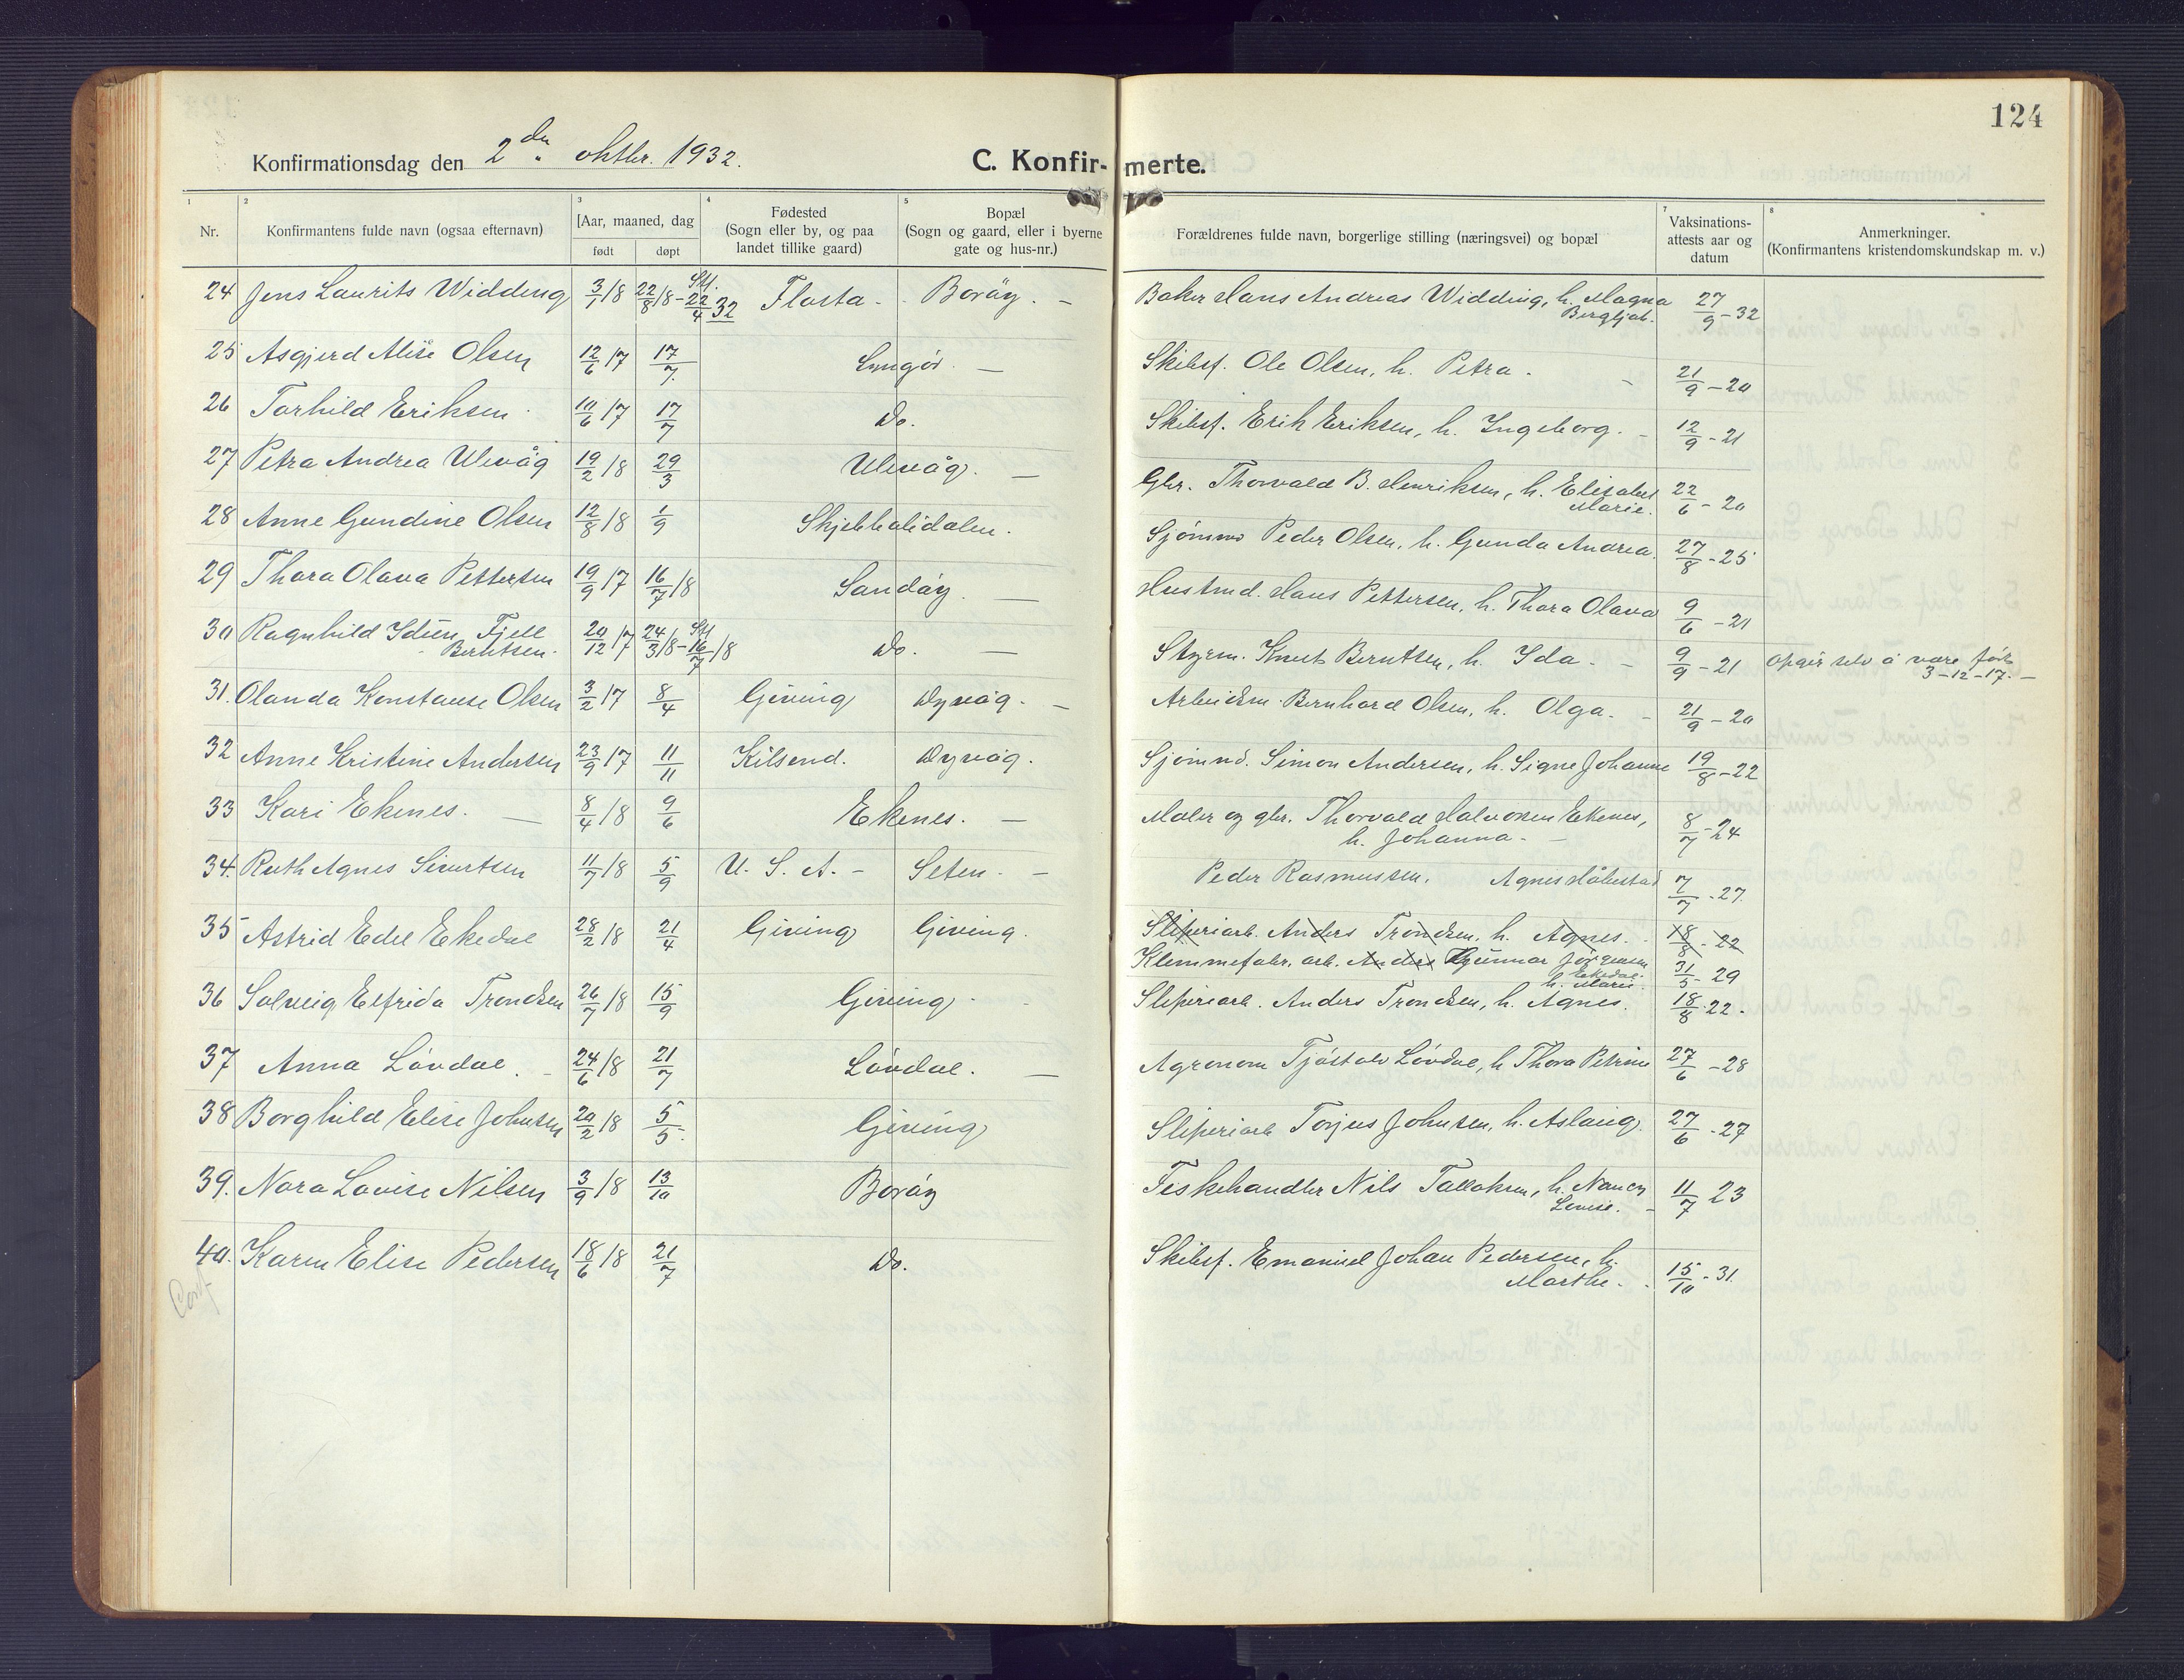 124
Konfirmationsdag den 2den oktbr. 1932.
C. Konfir- merte.
1 2 3 4 5 7 8
Nr.
Konfirmantens fulde navn (ogsaa efternavn)
[Aar, maaned, dag
født døpt
Fødested
(Sogn eller by, og paa
landet tillike gaard)
Bopæl
(Sogn og gaard, eller i byerne
gate og hus-nr.)
Forældrenes fulde navn, borgerlige stilling (næringsvei) og bopæl
Vaksinations-
attests aar og
datum
Anmerkninger.
(Konfirmantens kristendomskundskap m. v.)
24 Jens Laurits Widding 3/1 18 22/8 18 - 22/4 32 Flosta - Borøy. - Baker Hans Andreas Widding, h. Magna 27/9 - 32
Bergljot.
25 Asgjerd Alise Olsen 12/6 17 17/7. Lyngør. - Skibsf. Ole Olsen, h. Petra. - 21/9 - 20
26 Torhild Eriksen 10/6 17 17/7 Do. Skibsf. Erik Eriksen, h. Ingeborg. - 12/9 - 21
27 Petra Andrea Ulevåg 19/2 18 29/3 Ulevåg. - Gbr. Thorvald B. Henriksen, h. Elisabet 22/6 - 20
Marie.
28 Anne Gundine Olsen 12/8 18 1/9 Skjebbalidalen. Sjømnd Peder Olsen, h. Gunda Andrea. 27/8 - 25
29 Thora Olava Pettersen 19/9 17 16/7 18 Sandøy. - Hustmd. Hans Pettersen, h. Thora Olava 9/6 - 21
30 Ragnhild Idun Fjell 20/12 17 24/3 18 - 16/7 18 Do. - Styrm. Knut Berntsen, h. Ida. - 9/9 - 21 Opgir selv å være født
Berntsen. 3-12-17. -
31. Olanda Konstanse Olsen 3/2 17 8/4 Giving Dyvåg. - Arbeidsm. Bernhard Olsen, h. Olga. - 21/9 - 20
32 Anne Kristine Andersen 23/9 17 11/11 Kilsund. Dyvåg. Sjømnd. Simon Andersen, h. Signe Johanne 19/8 - 22
33 Kari Ekenes. - 8/4 18 9/6 Ekenes. - Maler og gbr. Thorvald Halvorsen Ekenes, 8/7 - 24
h. Johanna. -
34. Ruth Agnes Sivertsen 11/7 18 5/9 U. S. A. - Seten. - Peder Rasmussen. Agnes Håbestad 7/7 - 27.
35 Astrid Edel Ekedal 28/2 18 21/4 Giving Giving. Sliperiarb. Anders Trondsen, h. Agnes. 18/8 - 22
Klemmefabr. arb. Anders Gunnar Jørgensen 31/5 - 29
Ekedal.
h. Marie.
36 Solveig Elfrida Trondsen 26/7 18 15/9 Giving. Sliperiarb. Anders Trondsen, h. Agnes. 18/8 - 22.
37 Anna Løvdal. - 24/6 18 21/7 Løvdal. - Agronom Tjøstolv Løvdal, h Thora Petrine 27/6 - 28
38 Borghild Elise Johnsen 20/2 18 5/5. Giving Sliperiarb Torjus Johnsen, h. Aslaug. 27/6 - 27
39. Nora Lovise Nilsen 3/9 18 13/10 Borøy Fiskehandler Nils Tallaksen, h. Nancy 11/7 23
Lovise. -
40. Karen Elise Pedersen 18/6 18 21/7 Do. Skibsf. Emanuel Johan Pedersen, h. 15/10 - 31.
Marthe. -
Conf.